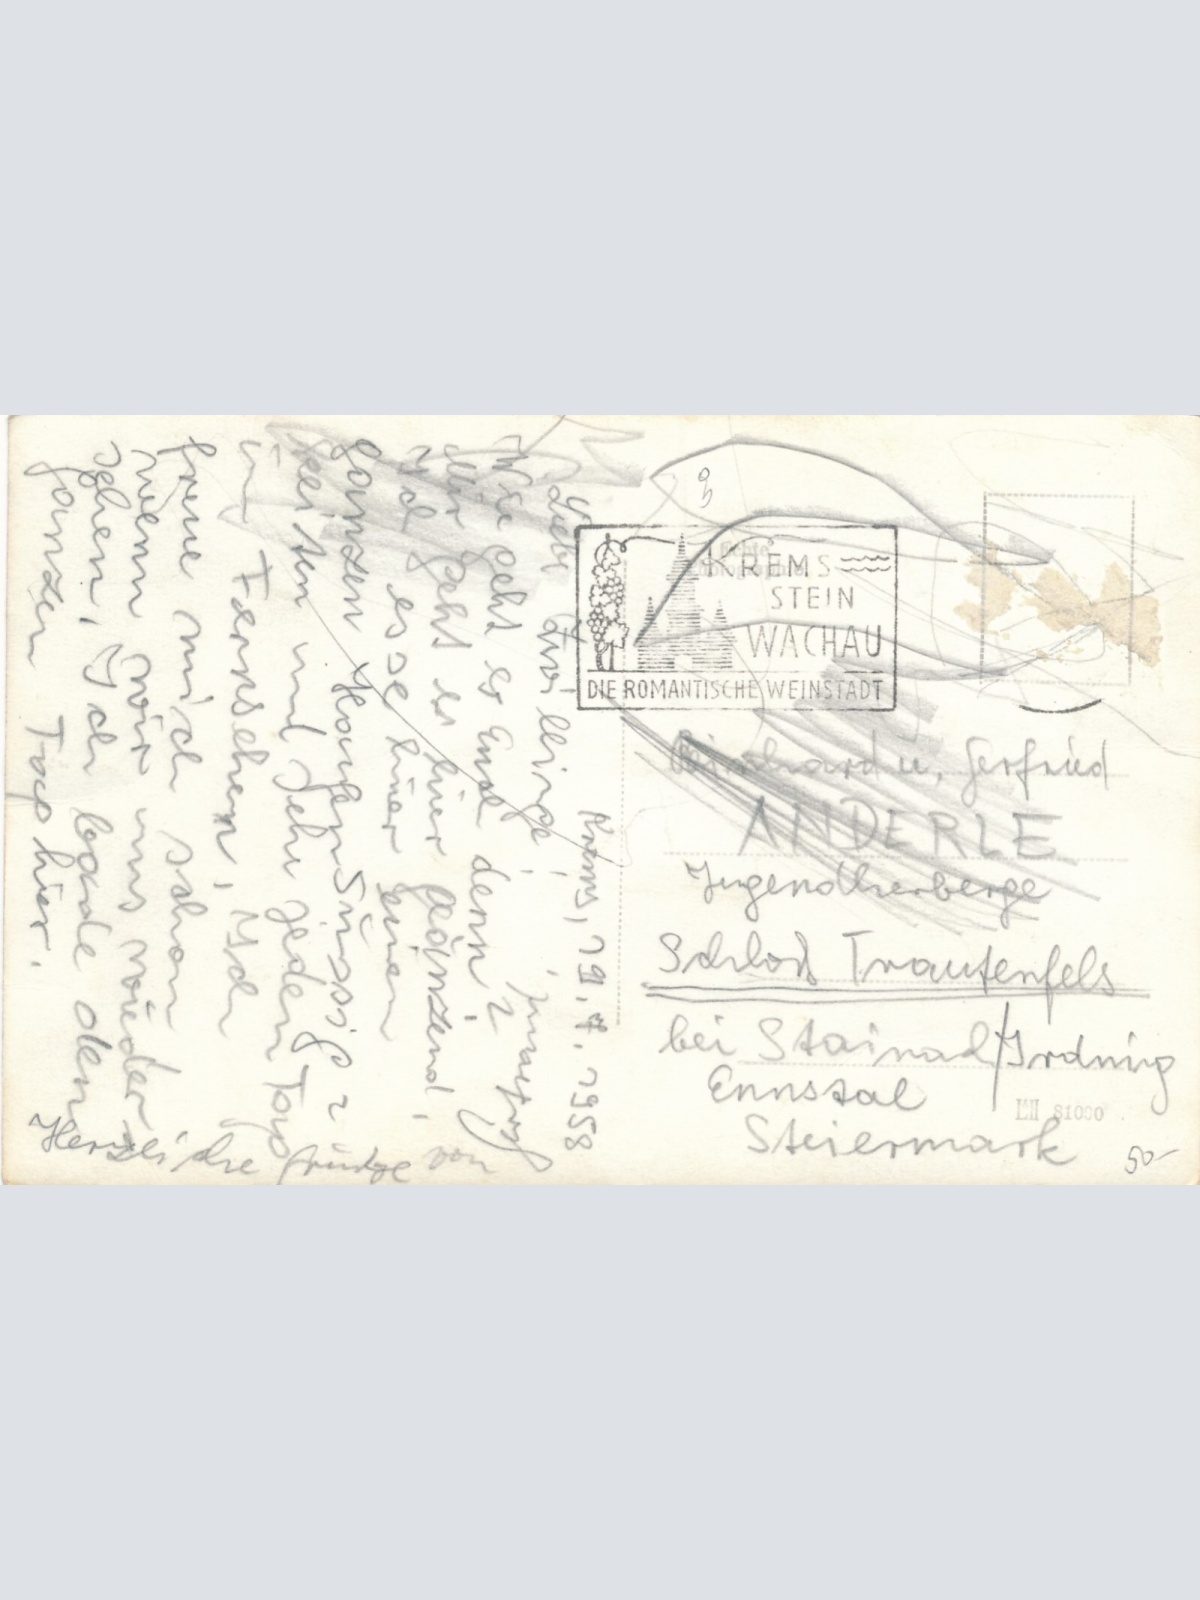 Krems, 19.7.1958
Liebe Zwillinge!
Wie geht es Euch denn?
Mir geht es hier glänzend.
Ich esse hier einen
ganzen Haufen Süssig-
keiten und sehe jeden Tag
in Fernsehen. Ich
freue mich schon
wenn wir uns wieder
sehen. Ich bade den
ganzen Tag hier.
Herzliche Grüße von
KREMS
STEIN
WACHAU
DIE ROMANTISCHE WEINSTADT
u. Gerfried
ANDERLE
Jugendherberge
Schloß Trautenfels
bei Stainach/Irdning
Ennstal
Steiermark
81000
50-